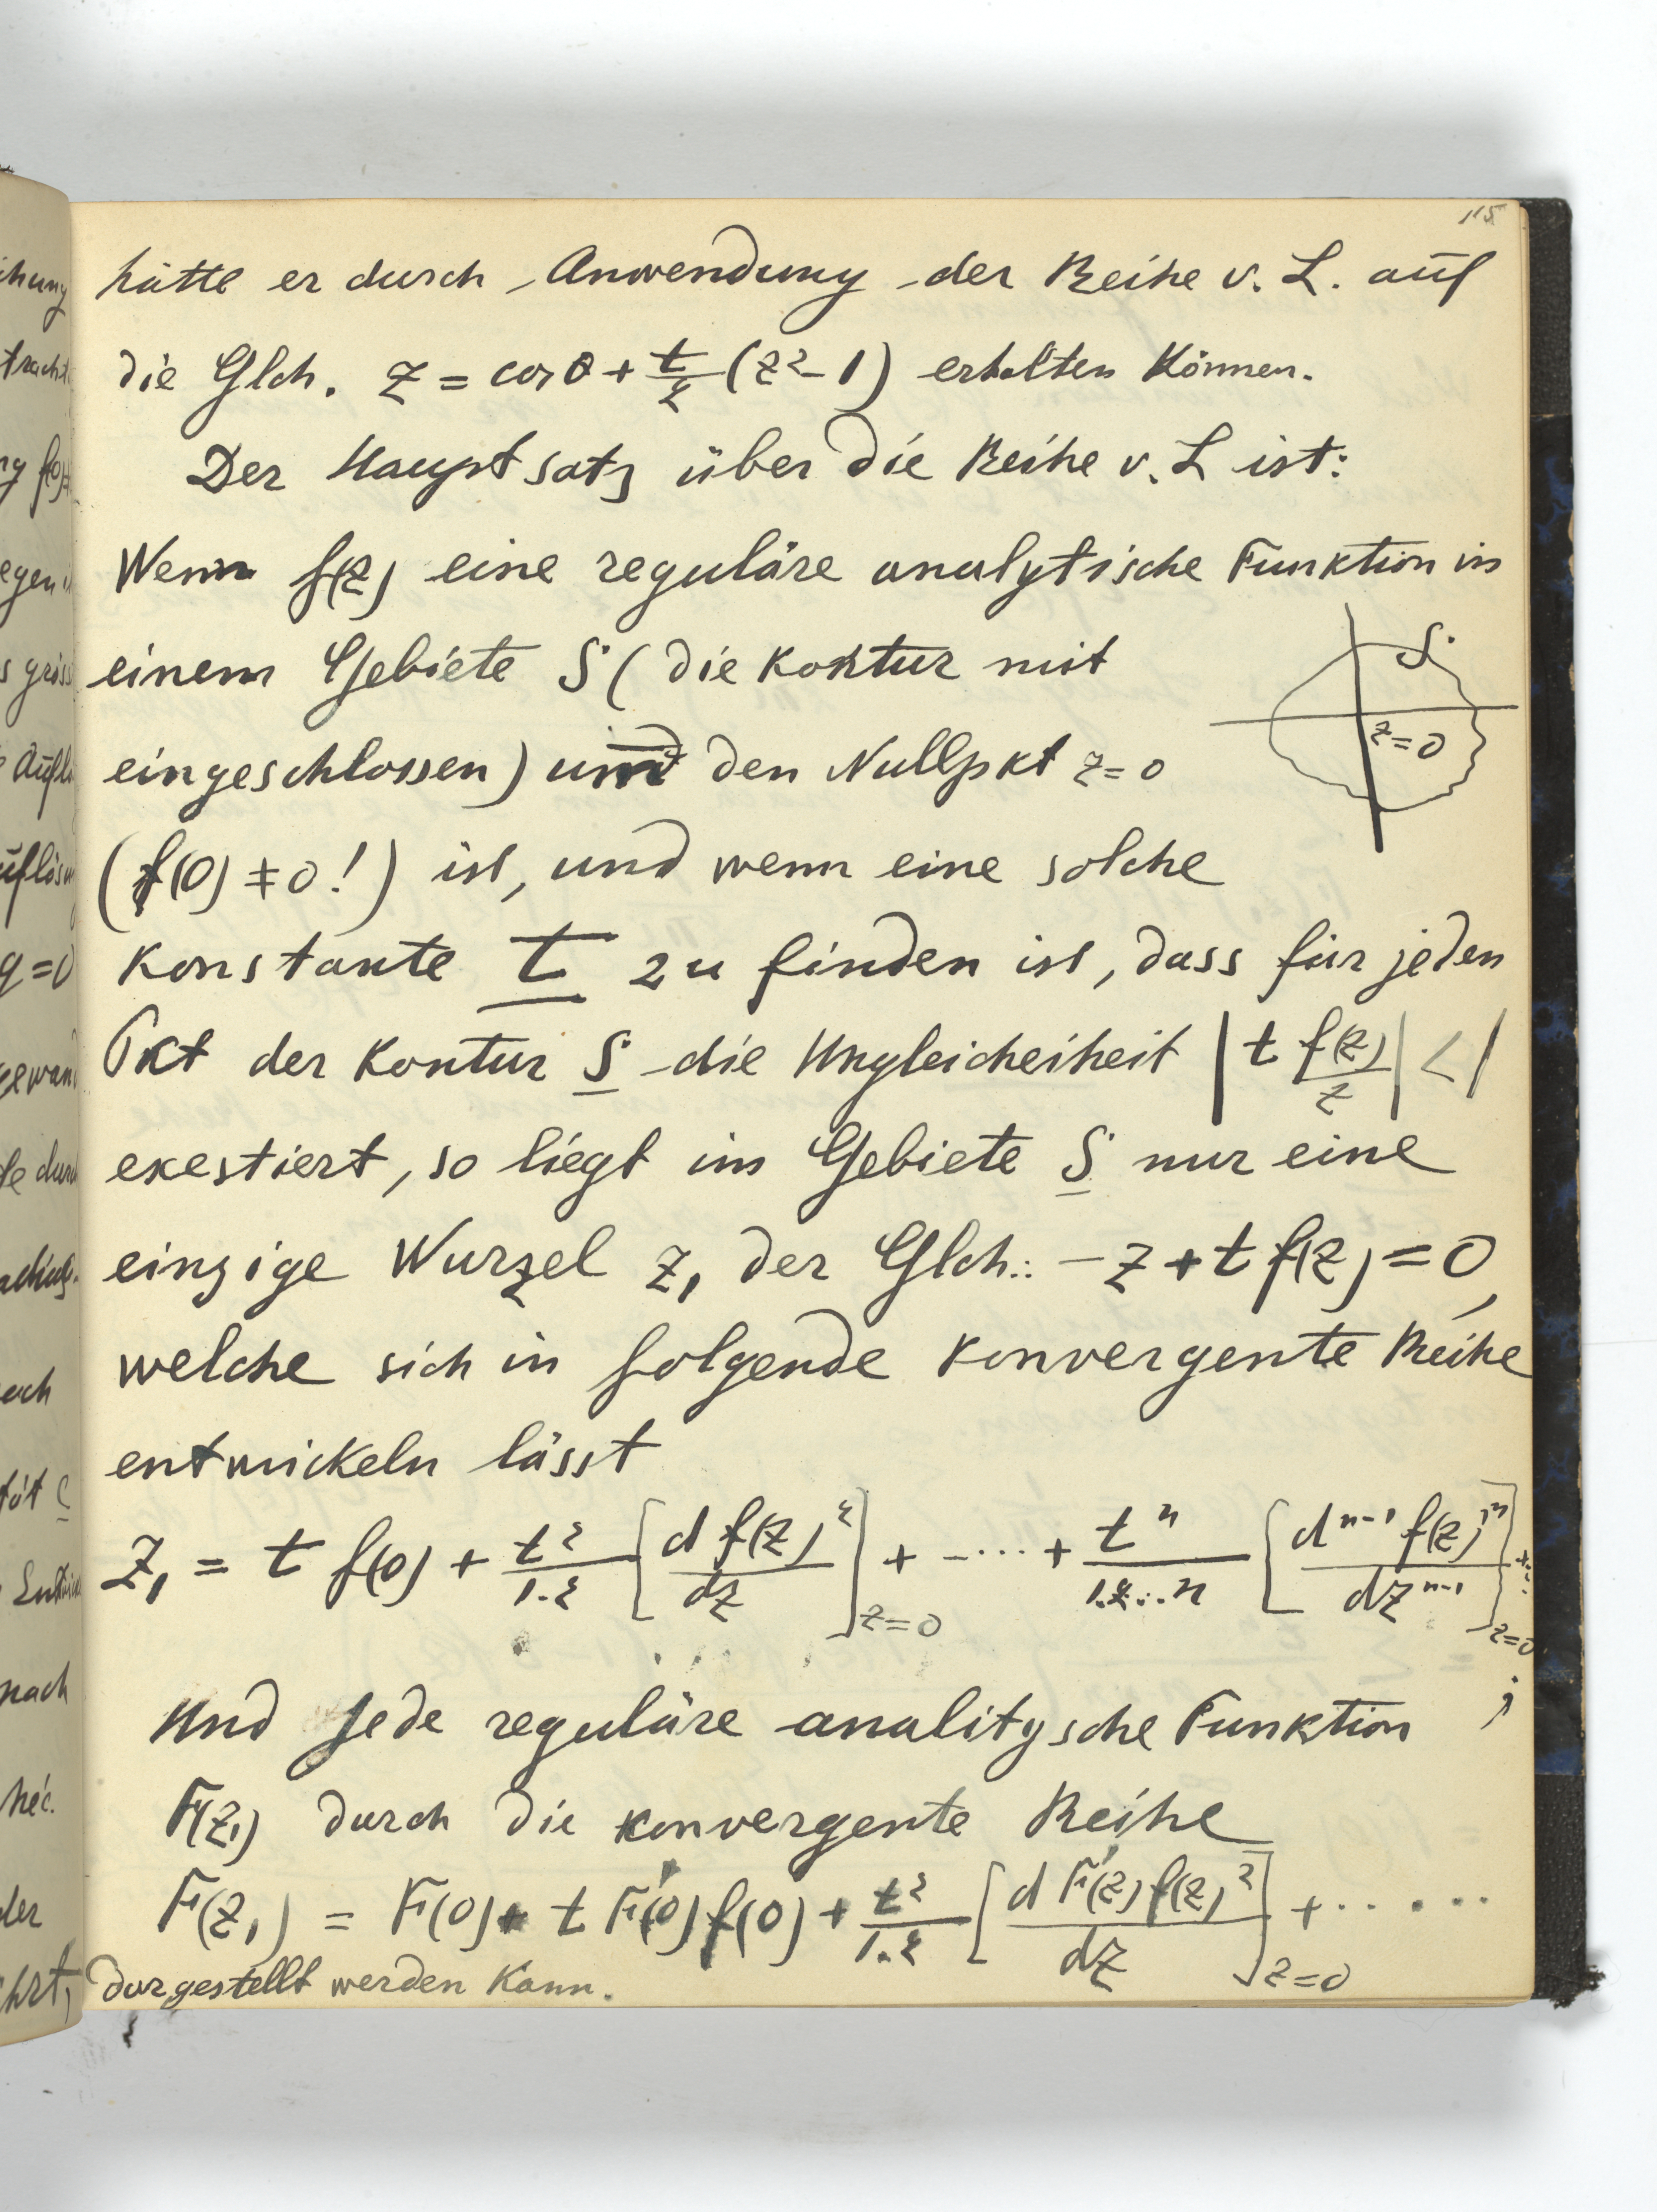 115
hätte er durch Anwendung der Reihe v. L. auf
die Glch. z = cos θ + t/2 (z² - 1) erhalten können.
Der Hauptsatz über die Reihe v. L ist:
Wenn f(z) eine reguläre analytische Funktion in
einem Gebiete S (die Kontur mit
S
eingeschlossen) um den Nullpkt z=0
z=0
(f(0) ≠ 0!) ist, und wenn eine solche
Konstante t zu finden ist, dass für jeden
Pkt der Kontur S die Ungleicheiheit |t f(z)/z| < 1
exestiert, so liegt im Gebiete S nur eine
einzige Wurzel z₁ der Glch.: -z + t f(z) = 0,
welche sich in folgende konvergente Reihe
entwickeln lässt
z₁ = t f(0) + t²/1.2 [d f(z)²/dz]z=0 + - ··· + tⁿ/1.2...n [dⁿ⁻¹ f(z)ⁿ/dzⁿ⁻¹]z=0 + ..
;
Und jede reguläre analitysche Funktion
F(z₁) durch die konvergente Reihe
F(z₁) = F(0) + t F'(0) f(0) + t²/1.2 [d F'(z) f(z)²/dz]z=0 + ·····
dargestellt werden kann.